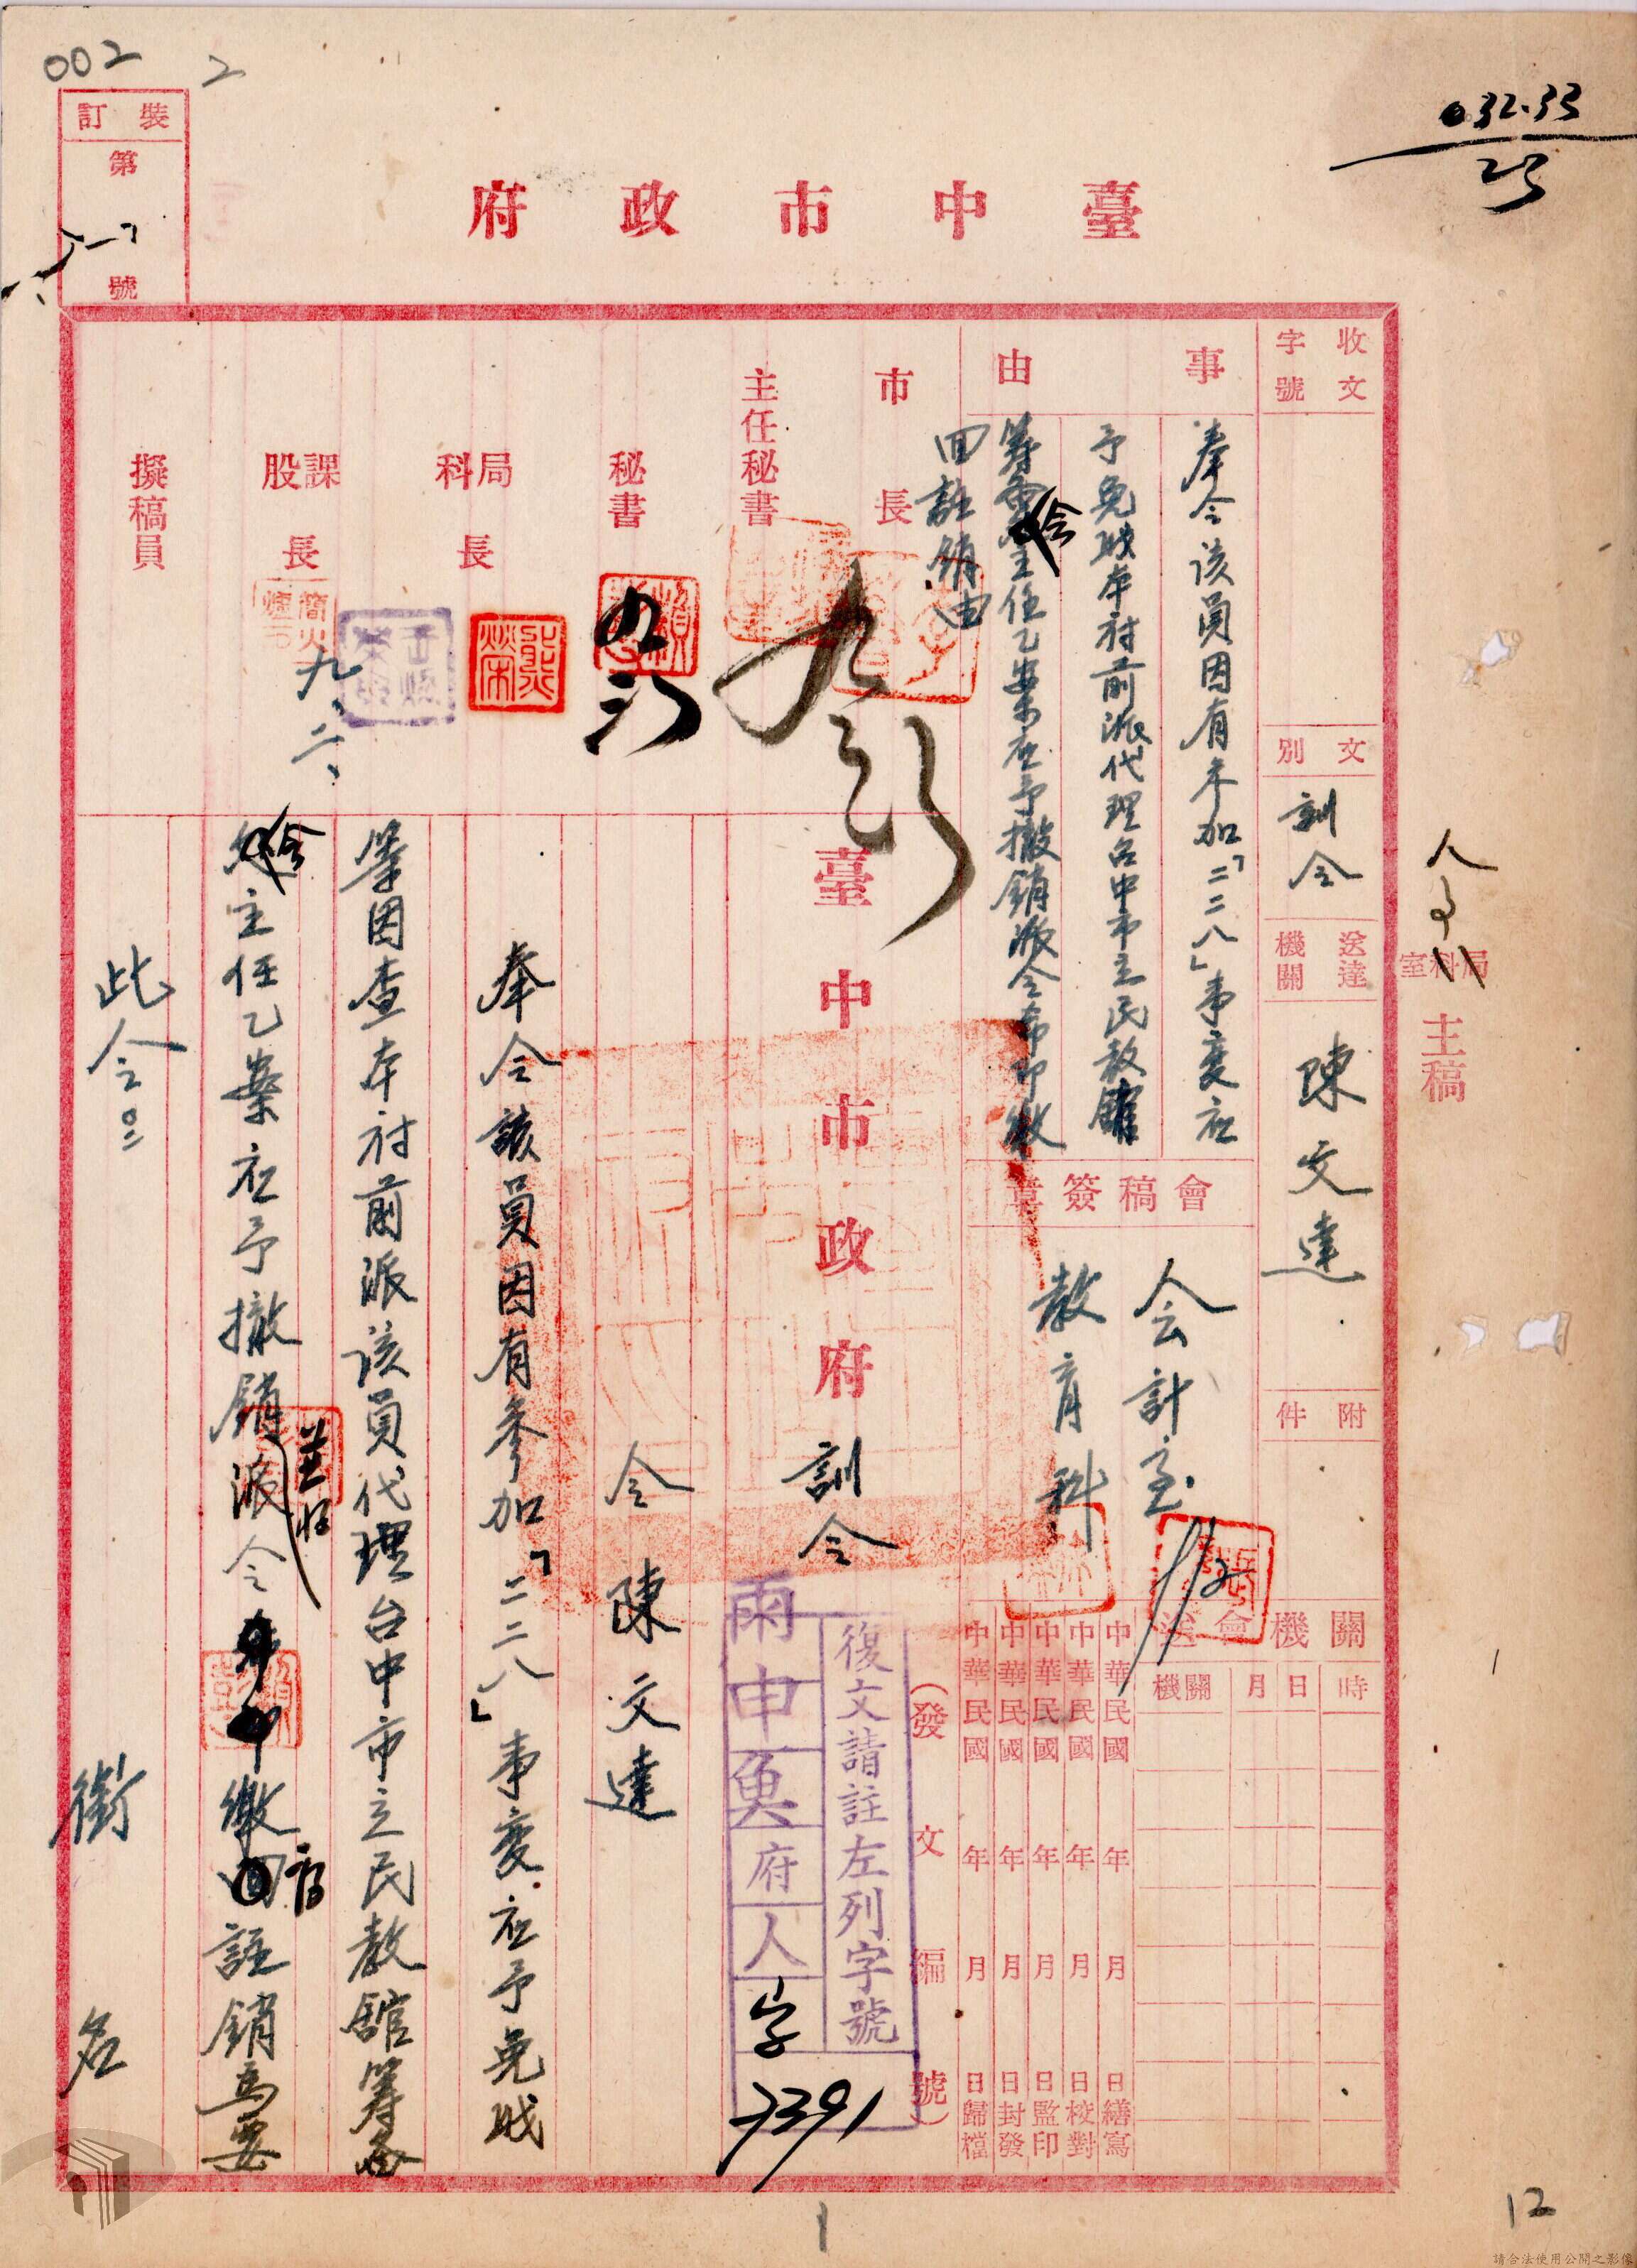 002
2
032.33
25
裝訂
第
號
臺中市政府
收文
字號
文別
訓令
送達
機關
陳文達
附件
人事
局科室
主稿
事由
奉令該員因有參加「二二八」事變應
予免職本府前派代理台中市立民教館
籌備會主任乙案應予撤銷派令希即繳
回註銷由
會稿簽章
会計室
1/2
教育科
市長
主任秘書
秘書
局科長
課股長
擬稿員
九、二、
關機會送
機關
月日
時
中華民國 年 月 日繕寫
中華民國 年 月 日校對
中華民國 年 月 日監印
中華民國 年 月 日封發
中華民國 年 月 日歸檔
(發文編號)
復文請註左列字號
府人字
7391
臺中市政府訓令
令陳文達
奉令該員因有參加「二二八」事變應予免職
等因查本府前派該員代理台中市立民教館籌備
会主任乙案應予撤銷派令繳回註銷為要
此令
銜名
1
12
請合法使用公開之影像